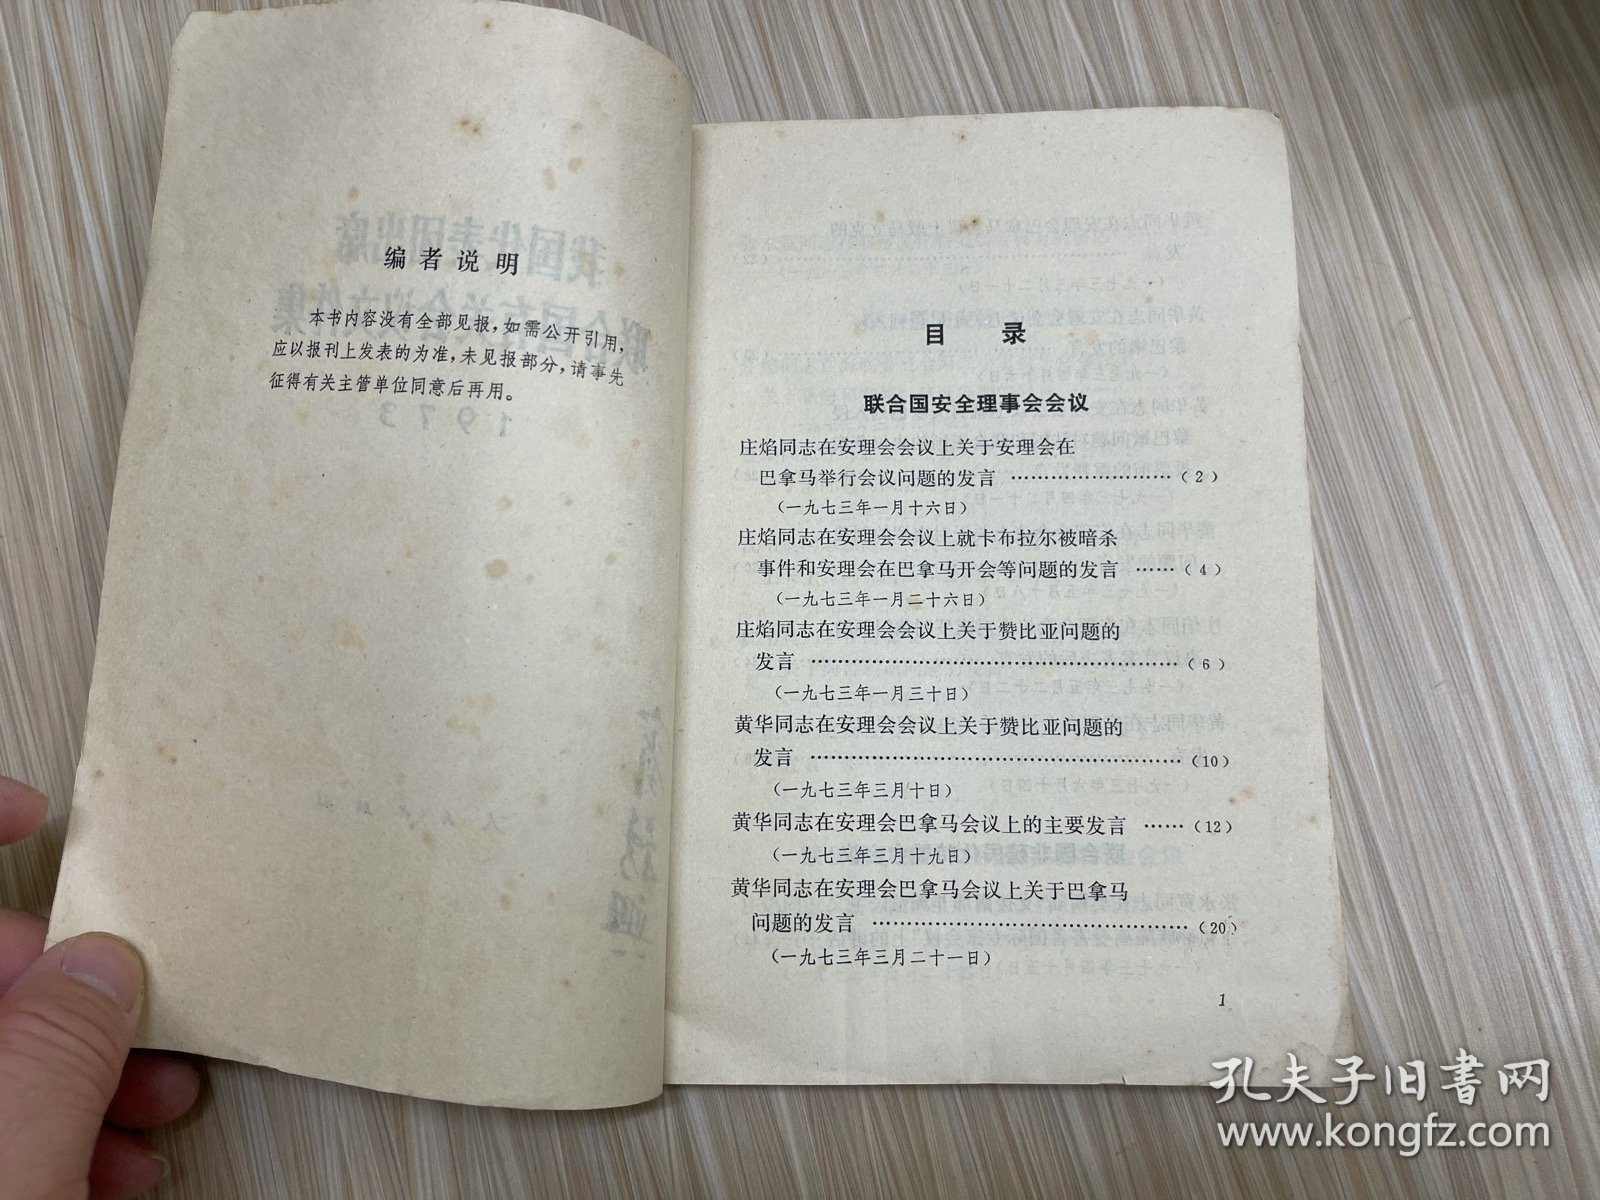 编者说明
本书内容没有全部见报，如需公开引用，
应以报刊上发表的为准，未见报部分，请事先
征得有关主管单位同意后再用。
目 录
联合国安全理事会会议
庄焰同志在安理会会议上关于安理会在
巴拿马举行会议问题的发言 ……………………（2）
（一九七三年一月十六日）
庄焰同志在安理会会议上就卡布拉尔被暗杀
事件和安理会在巴拿马开会等问题的发言 ……（4）
（一九七三年一月二十六日）
庄焰同志在安理会会议上关于赞比亚问题的
发言 ………………………………………………（6）
（一九七三年一月三十日）
黄华同志在安理会会议上关于赞比亚问题的
发言 ………………………………………………（10）
（一九七三年三月十日）
黄华同志在安理会巴拿马会议上的主要发言 ……（12）
（一九七三年三月十九日）
黄华同志在安理会巴拿马会议上关于巴拿马
问题的发言 ………………………………………（20）
（一九七三年三月二十一日）
1
孔夫子旧书网
www.kongfz.com